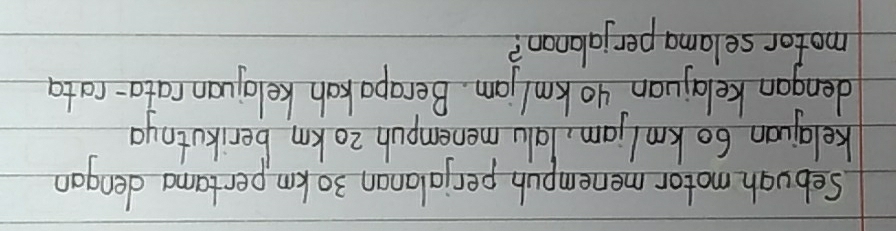 Sebuah motor menempuh perjalanan 30 km pertama dengan
kelajuan 60 km/jam, lalu menempuh 20 km berikutnya
dengan kelajuan 40 km/jam. Berapakah kelajuan rata-rata
motor selama perjalanan?